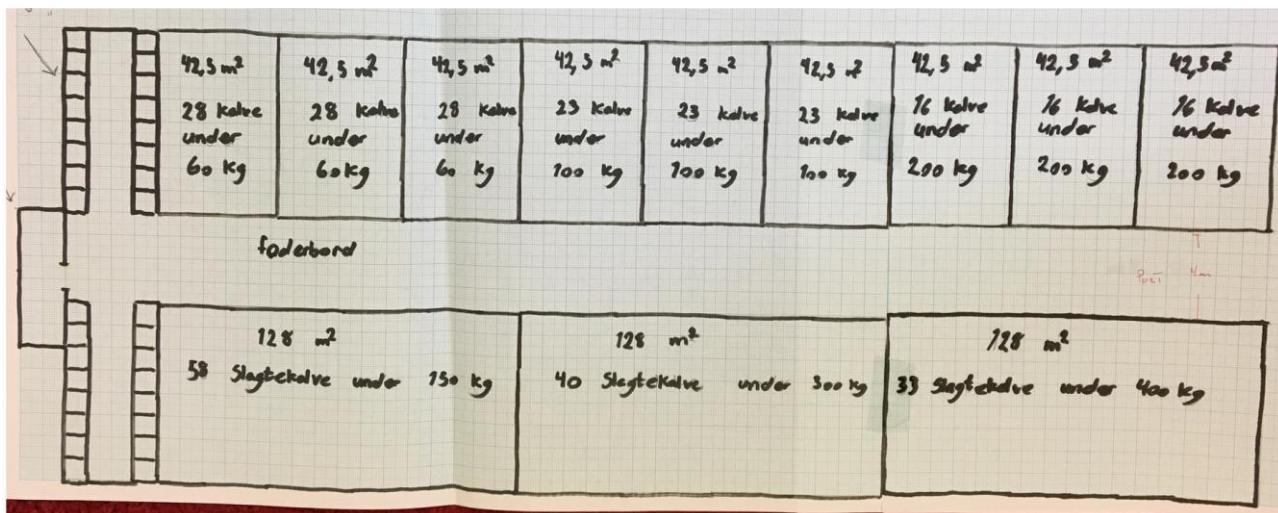 42,5 m²
28 Kalve
under
60 kg
42,5 m²
28 Kalve
under
60 kg
42,5 m²
28 Kalve
under
60 kg
42,5 m²
23 Kalve
under
100 kg
42,5 m²
23 Kalve
under
100 kg
42,5 m²
23 Kalve
under
100 kg
42,5 m²
16 Kalve
under
200 kg
42,5 m²
16 Kalve
under
200 kg
42,5 m²
16 Kalve
under
200 kg
foderbord
Port
128 m²
58 Slagtekalve under 150 kg
128 m²
40 Slagtekalve under 300 kg
128 m²
33 Slagtekalve under 400 kg